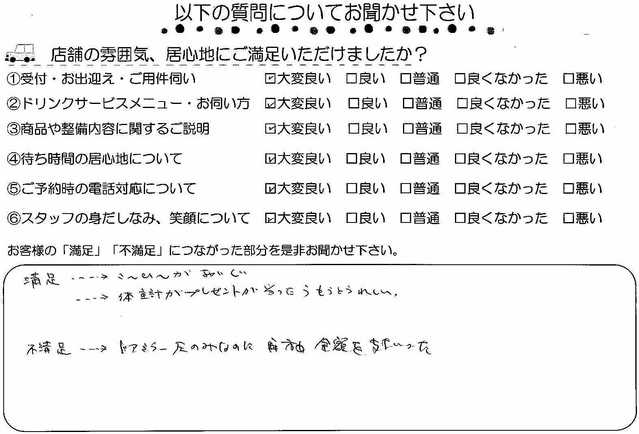 以下の質問についてお聞かせ下さい
店舗の雰囲気、居心地にご満足いただけましたか？
①受付・お出迎え・ご用件伺い ☑大変良い □良い □普通 □良くなかった □悪い
②ドリンクサービスメニュー・お伺い方 ☑大変良い □良い □普通 □良くなかった □悪い
③商品や整備内容に関するご説明 ☑大変良い □良い □普通 □良くなかった □悪い
④待ち時間の居心地について ☑大変良い □良い □普通 □良くなかった □悪い
⑤ご予約時の電話対応について ☑大変良い □良い □普通 □良くなかった □悪い
⑥スタッフの身だしなみ、笑顔について ☑大変良い □良い □普通 □良くなかった □悪い
お客様の「満足」「不満足」につながった部分を是非お聞かせ下さい。
満足 ----→
----→ 体重計がプレゼントが
不満足 ---→ ドアミラー左のみなのに 金額を